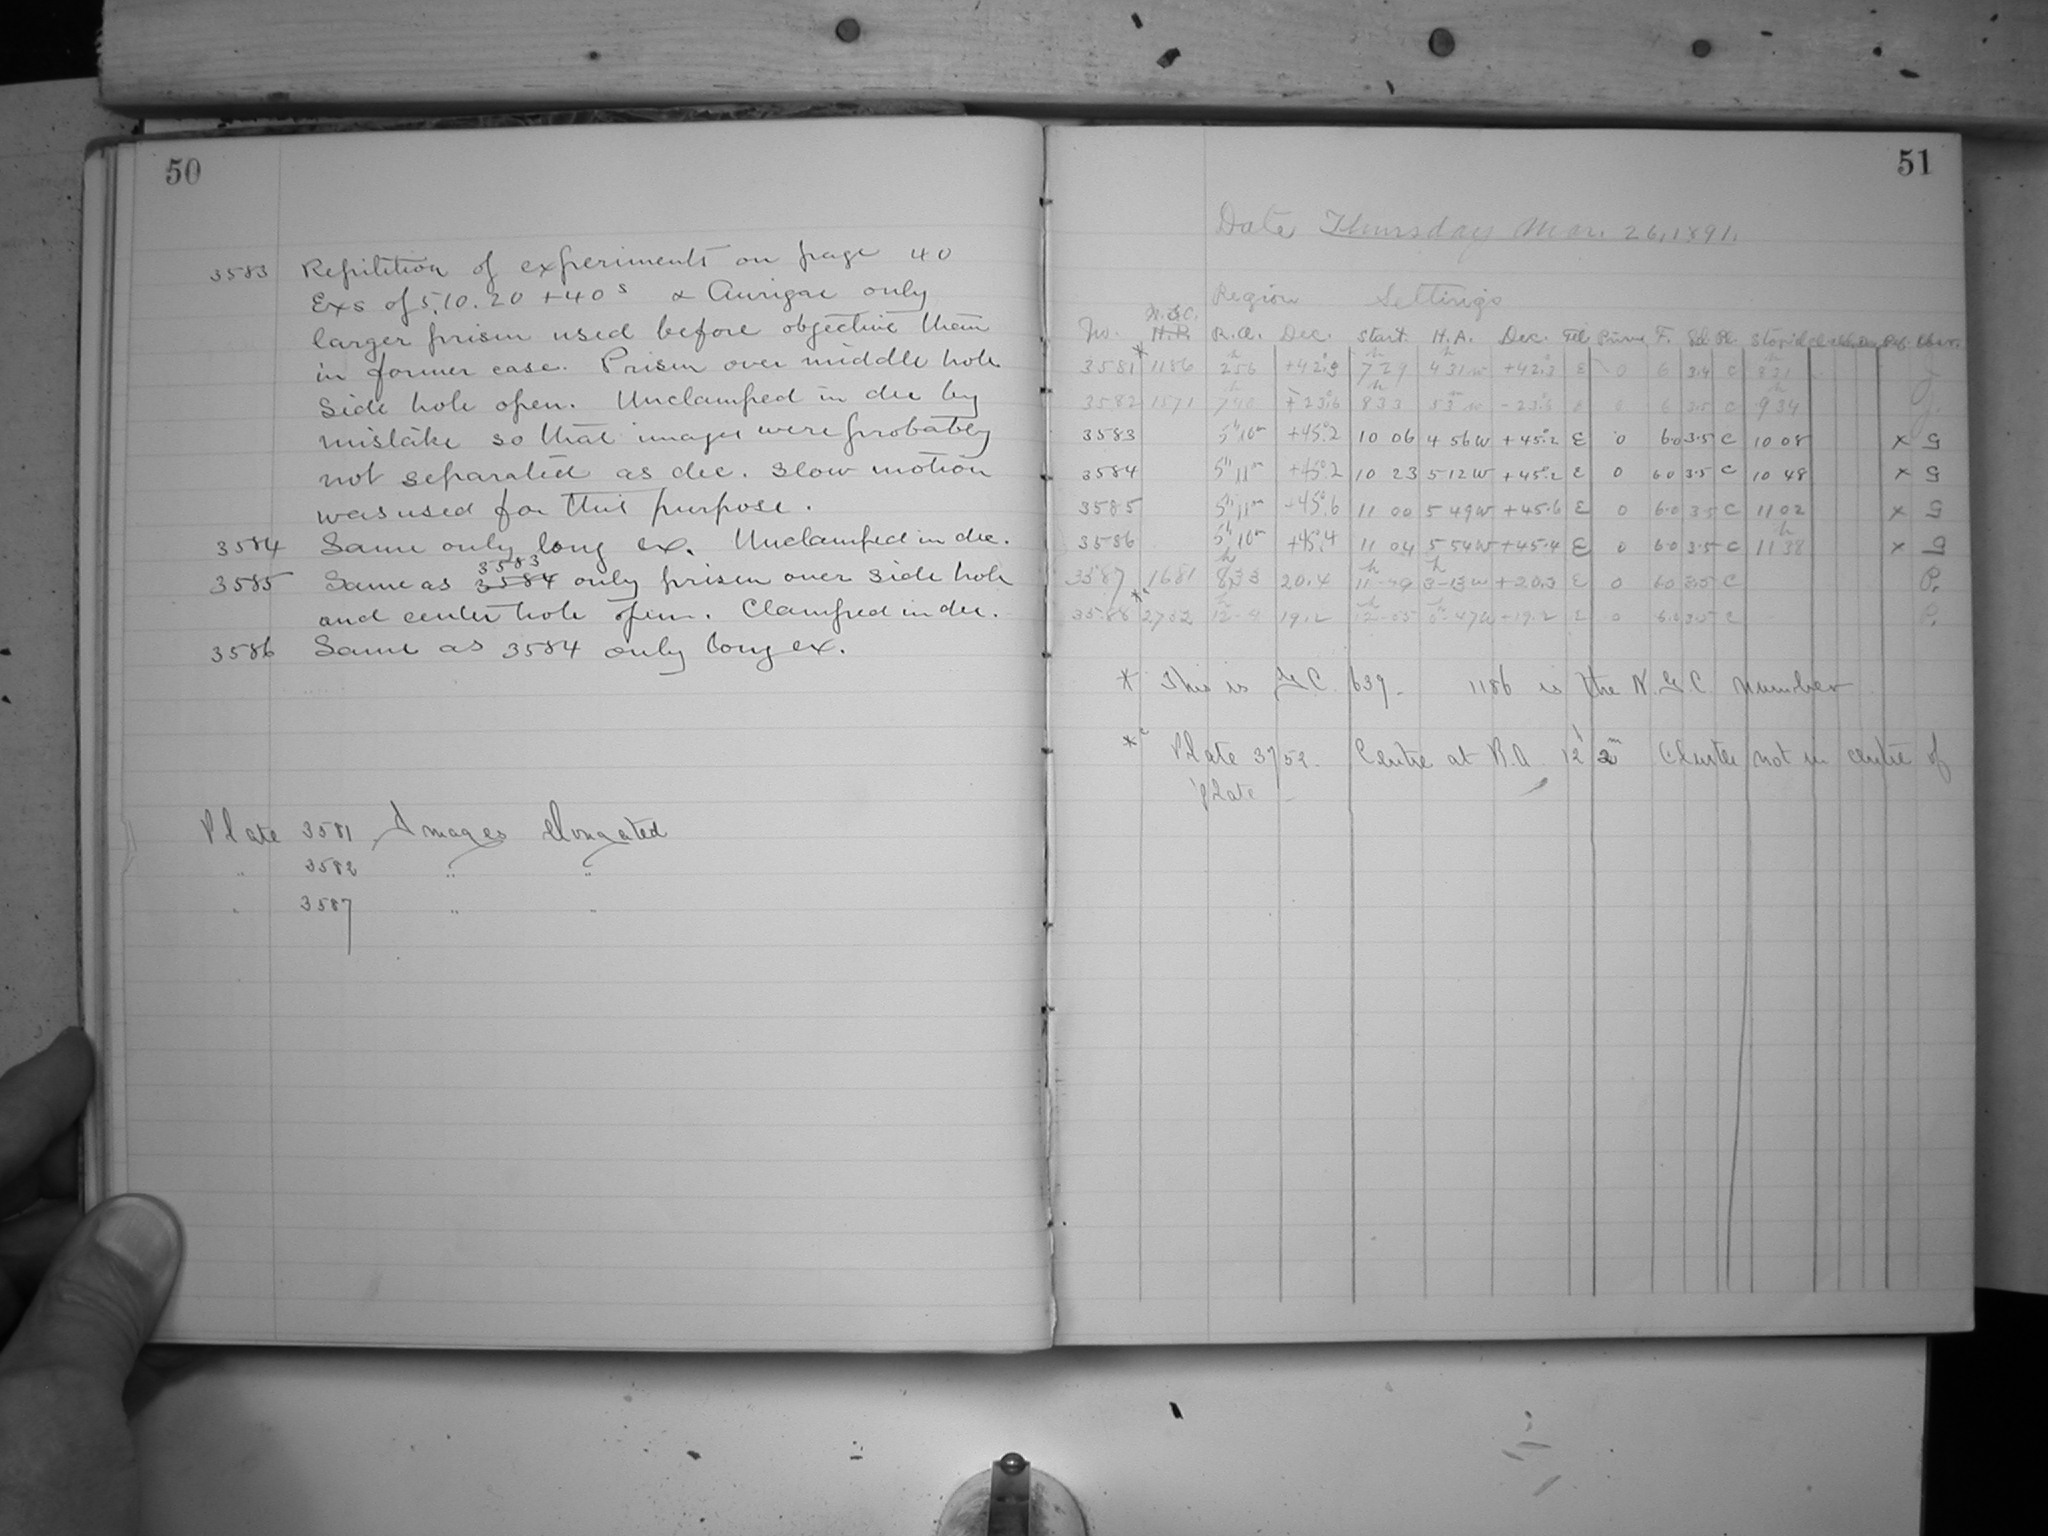 50
3583 Repitition of experiments on page 40
Exs of 5.10.20 + 40 s α Aurigae only
larger prism used before objective than
in former case. Prism over middle hole
side hole open. Unclamped in dec by
mistake so that images were probably
not separated as dec. slow motion
was used for this purpose.
3584 Same only long ex. Unclamped in dec.
3583
3585 Same as 3584 only prism over side hole
and center hole open. Clamped in dec.
3586 Same as 3584 only long ex.
Plate 3581 Images elongated
" 3582 " "
" 3587 " "
51
Date Thursday Mar. 26, 1891.
Region Settings
N.G.C.
No. H.P. R.A. Dec. Start. H.A. Dec. Tel Prism F. Sd. Pl. Stop
3581* 1186 2h56 +42.°3 7h29 4h31w +42.°3 E 0 6 3.4 C 8h31 J
3582 1571 833 C 9h34 J.
3583 5h10m +45.°2 10 06 4 56w +45.°2 E 0 6.0 3.5 C 10 08 x G
3584 5h11m +45.°2 10 23 5 12w +45.°2 E 0 6.0 3.5 C 10 48 x G
3585 5h11m +45.°6 11 00 5 49w +45.6 E 0 6.0 3.5 C 11 02 x G
3586 5h10m +45.°4 11 04 5 54w +45.4 E 0 6.0 3.5 C 11h38 x G
3587 1681 8h33 20.4 3-13w +20.3 E 0 6.0 3.5 C P.
3588 12-4 19.2 12-05 0-47w -19.2 E 0 6.0 3.5 C P.
* This is G.C. 639. 1186 is the N.G.C. number
* Plate 3752. Centre at R.A. 12h 2m Cluster not in centre of
plate